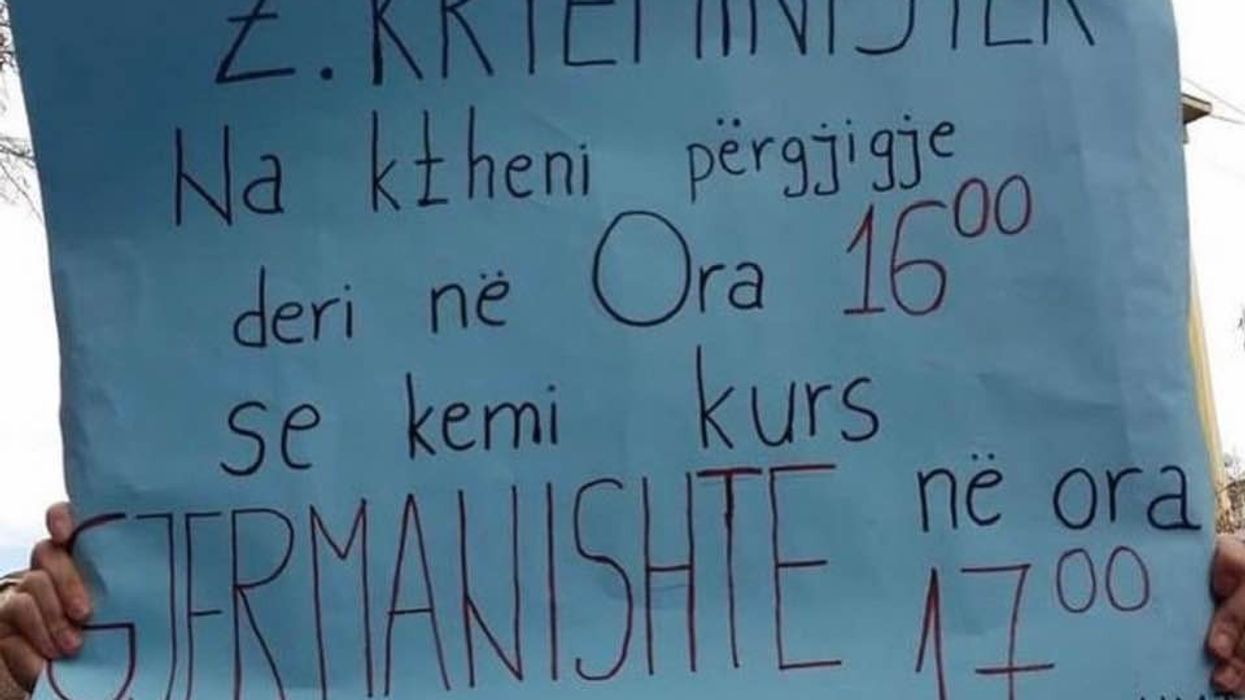 Z. KRYEMINISTER
Na ktheni përgjigje
deri në Ora 16⁰⁰
se kemi kurs
GJERMANISHTE në ora
17⁰⁰